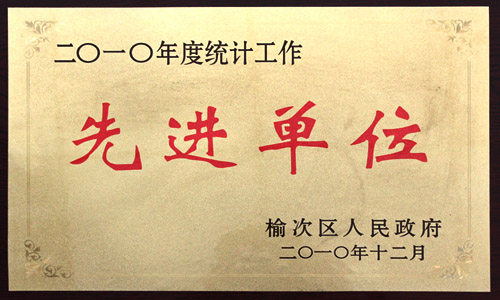 二〇一〇年度统计工作
先进单位
榆次区人民政府
二〇一〇年十二月